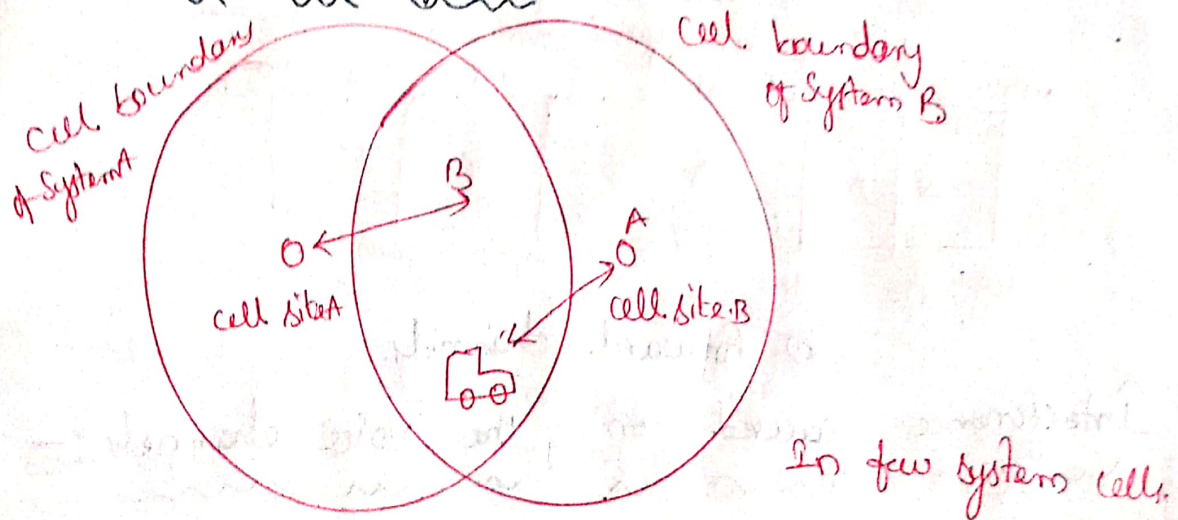 Cell boundary
of System A
Cell boundary
of System B
B
A
cell site A
cell site.B
In few system cells.